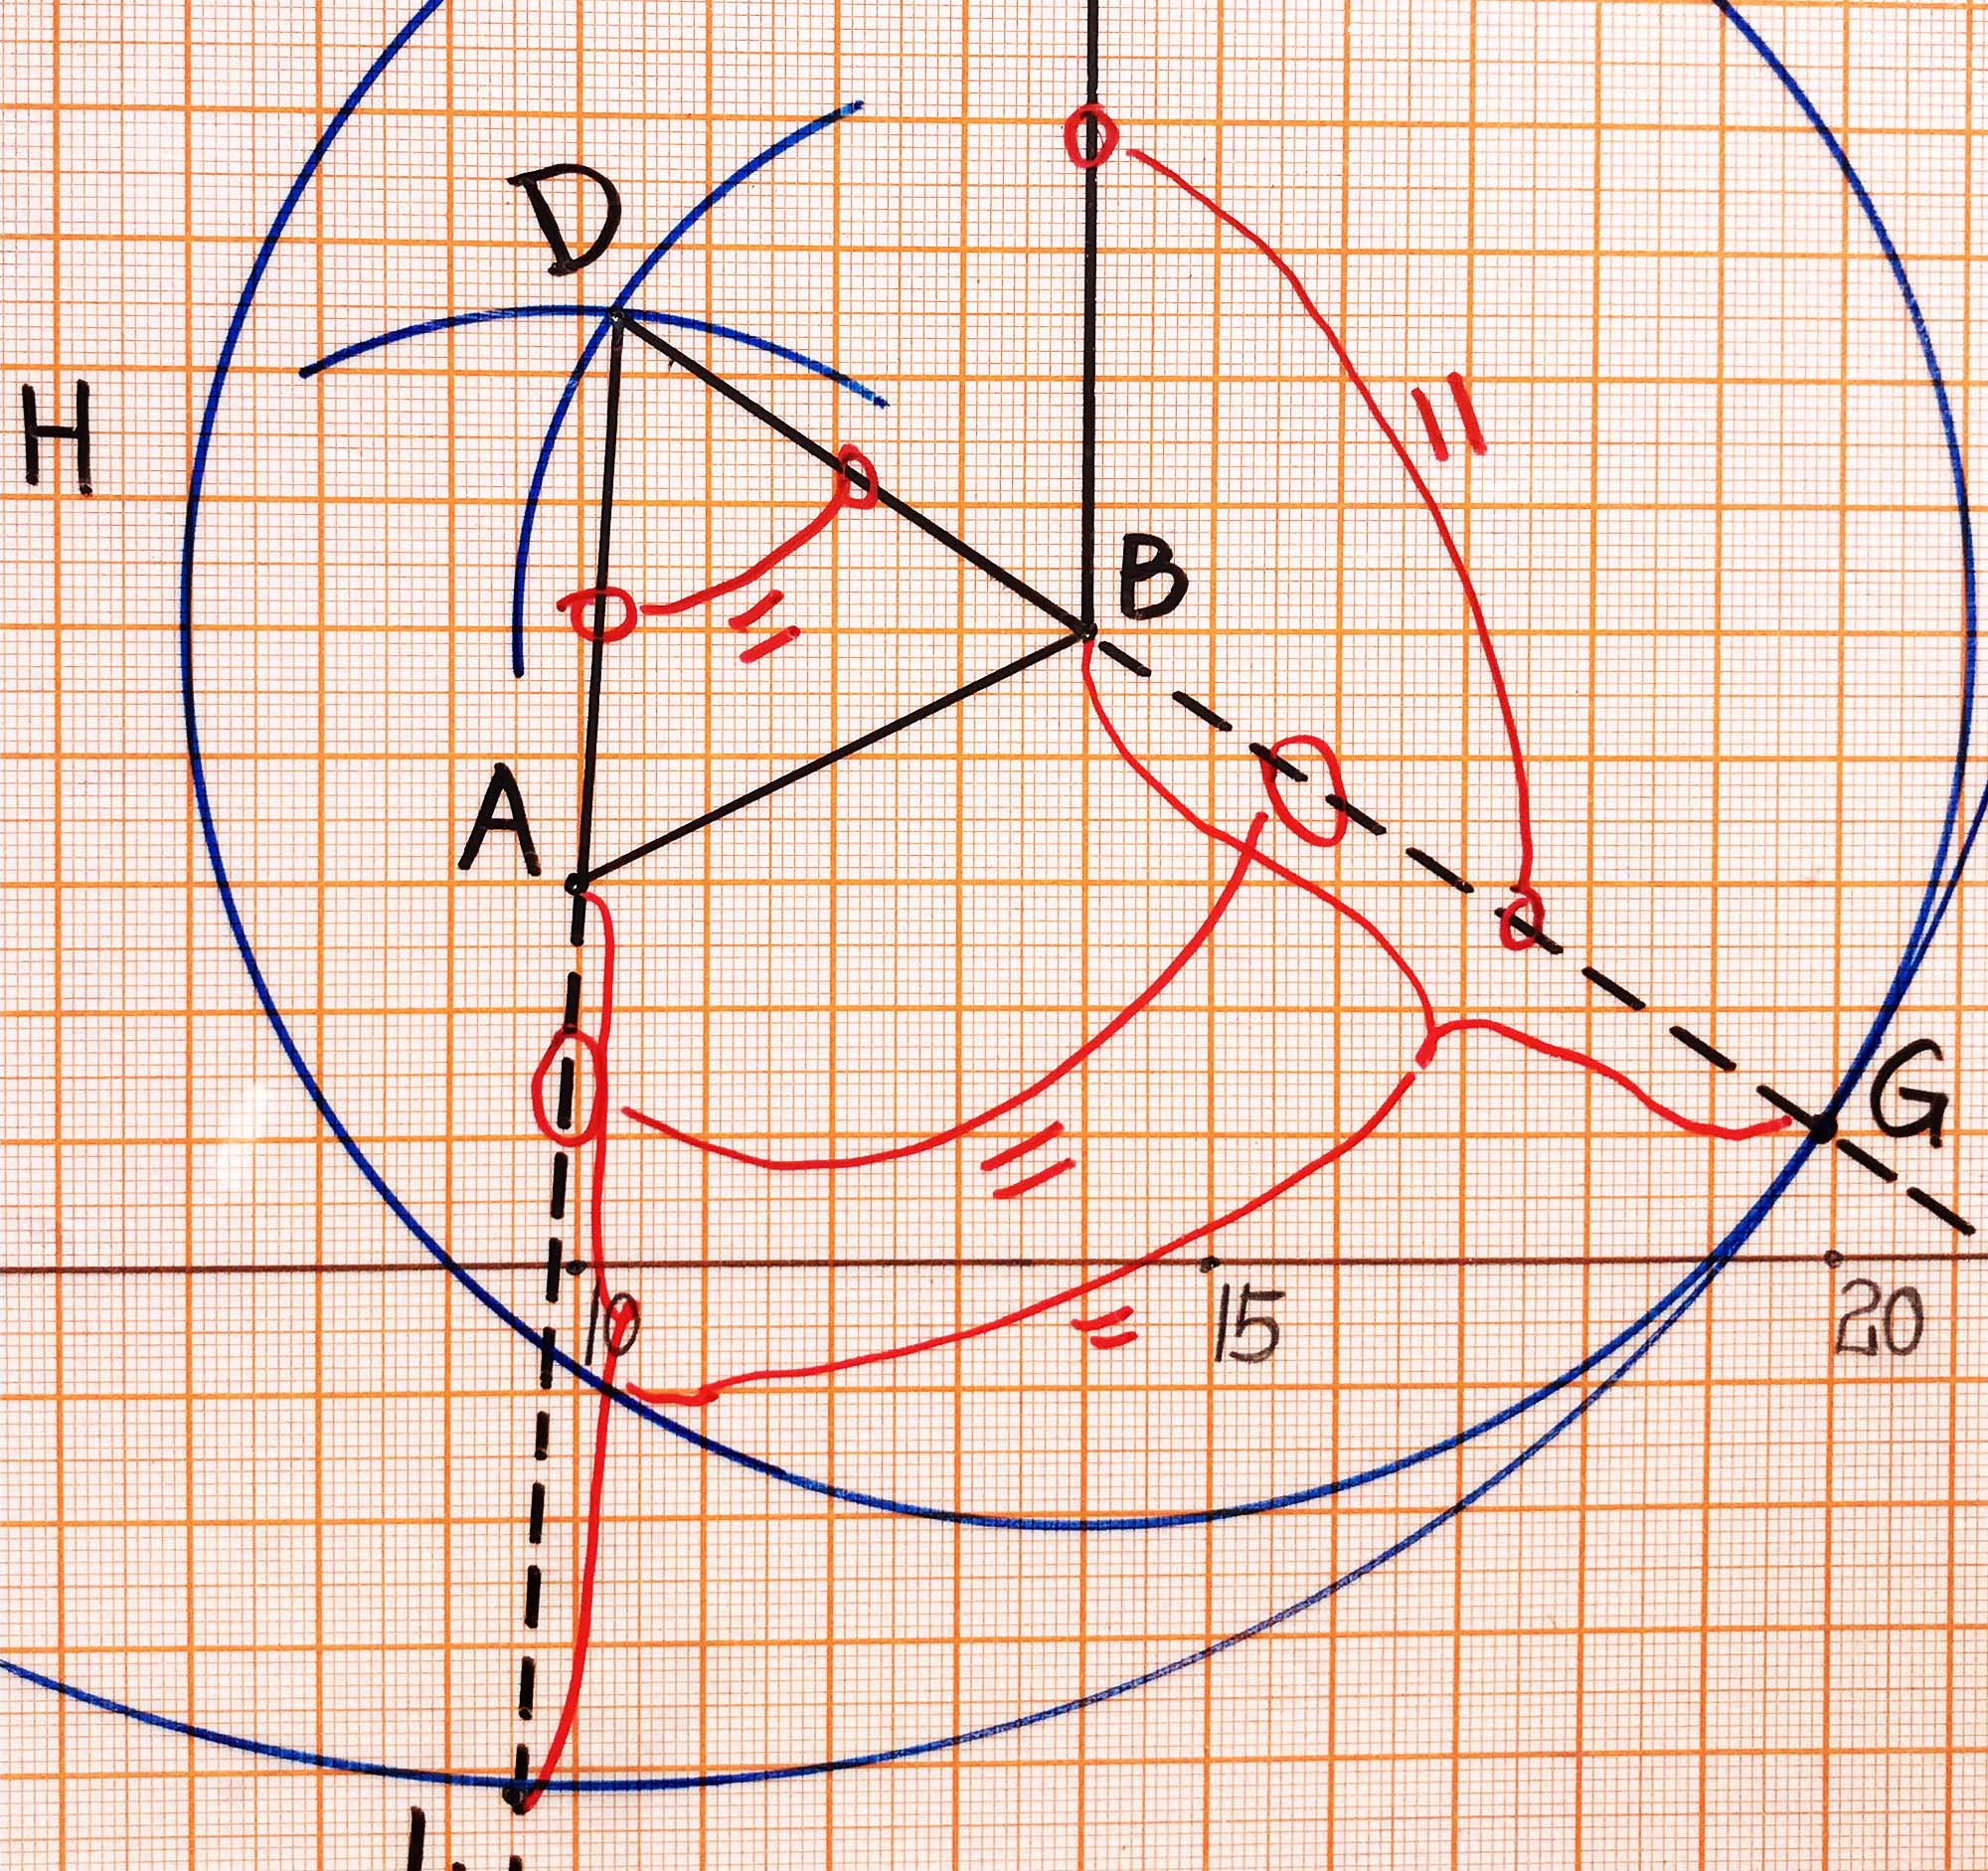 D
H
B
A
G
10
15
20